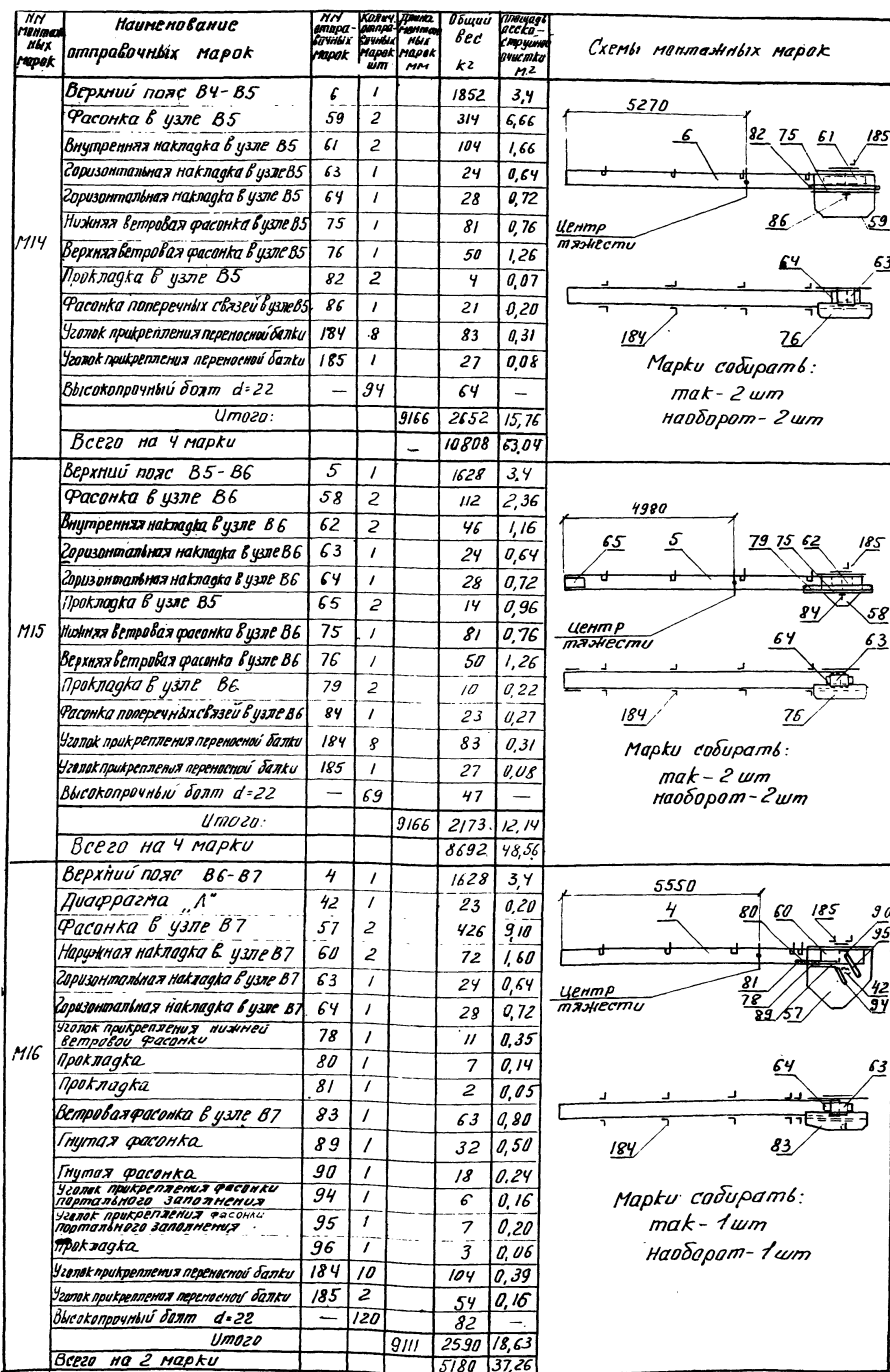 NN монтажных марок | Наименование отправочных марок | NN отправочных марок | Колич. отправочных марок шт | Длина монтажных марок мм | Общий вес кг | Площадь пескоструйной очистки м2 | Схемы монтажных марок
М14
Верхний пояс В4-В5 6 1 1852 3,4
Фасонка в узле В5 59 2 314 6,66
Внутренняя накладка в узле В5 61 2 104 1,66
Горизонтальная накладка в узле В5 63 1 24 0,64
Горизонтальная накладка в узле В5 64 1 28 0,72
Нижняя ветровая фасонка в узле В5 75 1 81 0,76
Верхняя ветровая фасонка в узле В5 76 1 50 1,26
Прокладка в узле В5 82 2 4 0,07
Фасонка поперечных связей в узле В5 86 1 21 0,20
Уголок прикрепления переносной балки 184 8 83 0,31
Уголок прикрепления переносной балки 185 1 27 0,08
Высокопрочный болт d=22 — 94 64 —
Итого: 9166 2652 15,76
Всего на 4 марки — 10808 63,04
5270
6 82 75 61 185
Центр тяжести
86 59
64 63
184 76
Марки собирать:
так - 2 шт
наоборот - 2 шт
М15
Верхний пояс В5-В6 5 1 1628 3,4
Фасонка в узле В6 58 2 112 2,36
Внутренняя накладка в узле В6 62 2 46 1,16
Горизонтальная накладка в узле В6 63 1 24 0,64
Горизонтальная накладка в узле В6 64 1 28 0,72
Прокладка в узле В5 65 2 14 0,96
Нижняя ветровая фасонка в узле В6 75 1 81 0,76
Верхняя ветровая фасонка в узле В6 76 1 50 1,26
Прокладка в узле В6 79 2 10 0,22
Фасонка поперечных связей в узле В6 84 1 23 0,27
Уголок прикрепления переносной балки 184 8 83 0,31
Уголок прикрепления переносной балки 185 1 27 0,08
Высокопрочный болт d=22 — 69 47 —
Итого: 9166 2173 12,14
Всего на 4 марки 8692 48,56
4980
65 5 79 75 62 185
Центр тяжести
84 58
64 63
184 76
Марки собирать:
так - 2 шт
наоборот - 2 шт
М16
Верхний пояс В6-В7 4 1 1628 3,4
Диафрагма „Л" 42 1 23 0,20
Фасонка в узле В7 57 2 426 9,10
Наружная накладка в узле В7 60 2 72 1,60
Горизонтальная накладка в узле В7 63 1 24 0,64
Горизонтальная накладка в узле В7 64 1 28 0,72
Уголок прикрепления нижней ветровой фасонки 78 1 11 0,35
Прокладка 80 1 7 0,14
Прокладка 81 1 2 0,05
Ветровая фасонка в узле В7 83 1 63 0,80
Гнутая фасонка 89 1 32 0,50
Гнутая фасонка 90 1 18 0,24
Уголок прикрепления фасонки портального заполнения 94 1 6 0,16
Уголок прикрепления фасонки портального заполнения 95 1 7 0,20
Прокладка 96 1 3 0,06
Уголок прикрепления переносной балки 184 10 104 0,39
Уголок прикрепления переносной балки 185 2 54 0,16
Высокопрочный болт d=22 — 120 82 —
Итого 9111 2590 18,63
Всего на 2 марки 5180 37,26
5550
4 80 60 185 90
95
Центр тяжести
81 42
78 94
89 57
64 63
184 83
Марки собирать:
так - 1 шт
наоборот - 1 шт